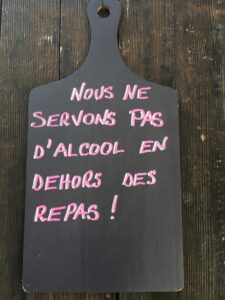 NOUS NE
SERVONS PAS
D'ALCOOL EN
DEHORS DES
REPAS !